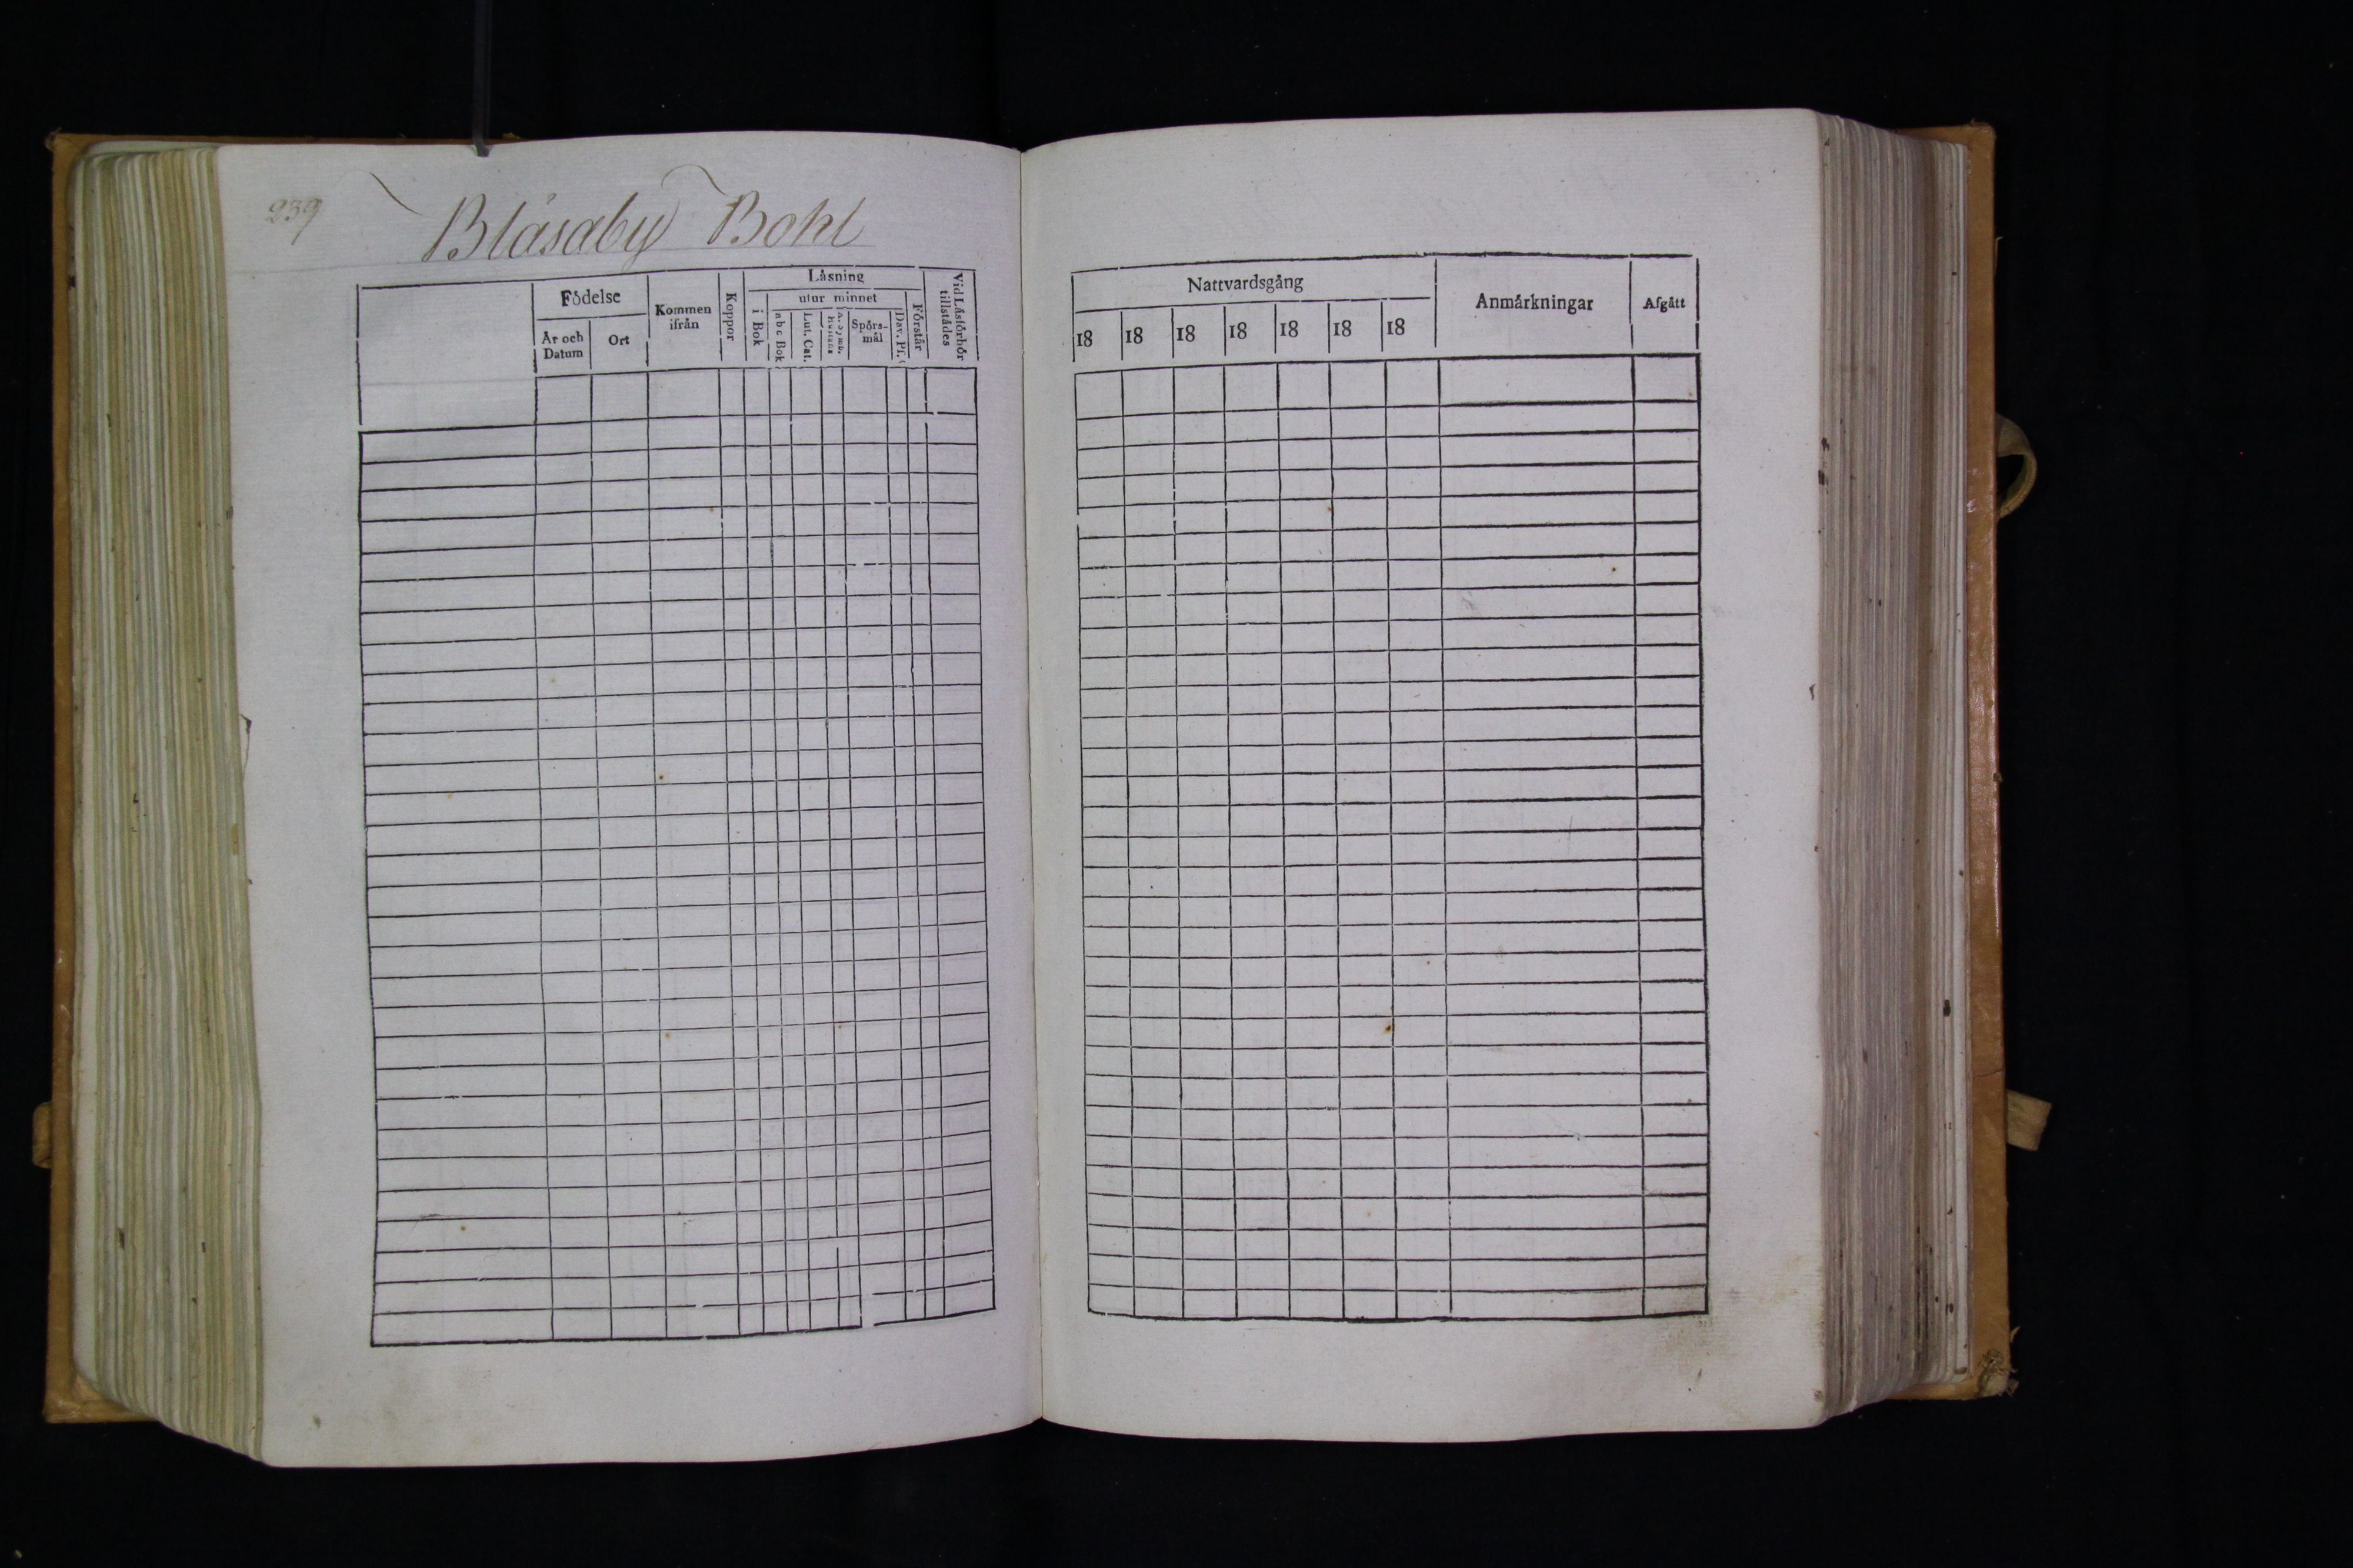 239
Blåsaby Bohl
Födelse
År och Datum
Ort
Kommen ifrån
Koppor
Läsning
utur minnet
i Bok
abc Bok
Lut. Cat.
Spörs-
mål
Dav. Ps.
Förstår
Vid Läsförhör
tillstädes
Nattvardsgång
18 18 18 18 18 18 18
Anmärkningar
Afgått